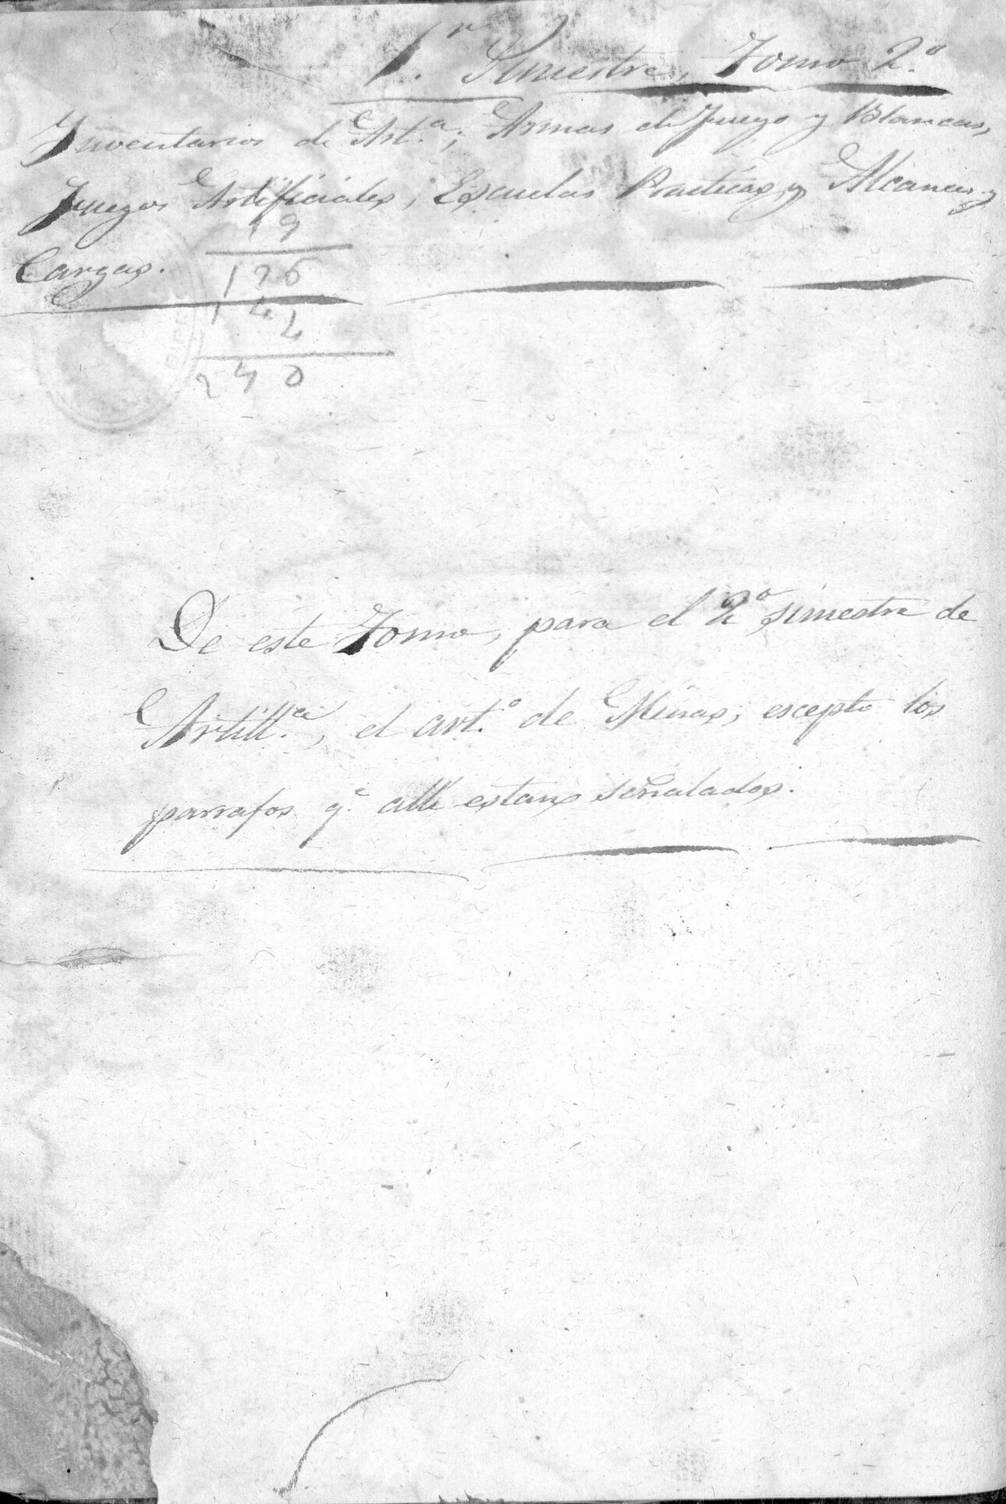 1.er Simestre, Tomo 2.º
Inventarios de Art.a; Armas de fuego y Blancas,
fuegos Artificiales; Escuelas Practicas, y Alcances y
Cargas.
19
126
14
4
240
De este Tomo, para el 2º simestre de
Artill.a, el art.º de Minas; escepto los
parrafos q.e alli estan señalados.